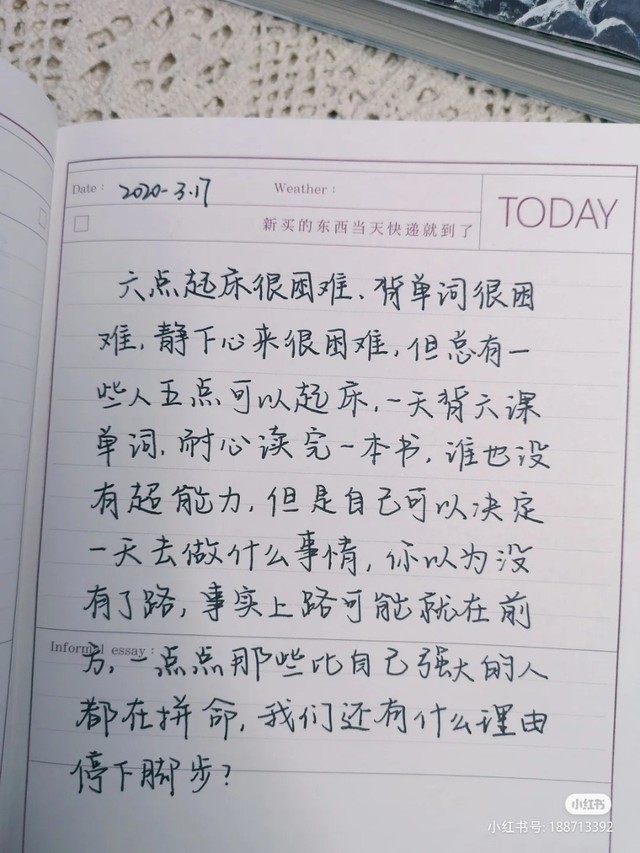 Date： 2020-3.17
Weather：
TODAY
新买的东西当天快递就到了
六点起床很困难、背单词很困
难，静下心来很困难，但总有一
些人五点可以起床，一天背六课
单词，耐心读完一本书，谁也没
有超能力，但是自己可以决定
一天去做什么事情，你以为没
有了路，事实上路可能就在前
Informal essay：
方，一点点那些比自己强大的人
都在拼命，我们还有什么理由
停下脚步？
小红书
小红书号: 188713392